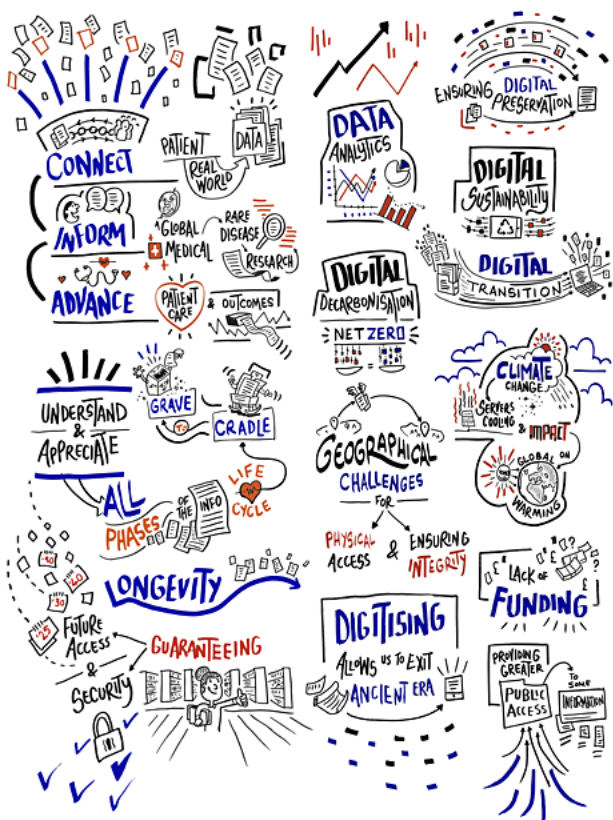 CONNECT
PATIENT
REAL
WORLD
DATA
INFORM
GLOBAL
MEDICAL
RARE
DISEASE
RESEARCH
ADVANCE
PATIENT
CARE
& OUTCOMES
UNDERSTAND
&
APPRECIATE
GRAVE
TO
CRADLE
LIFE
CYCLE
ALL
PHASES
OF
THE
INFO
LONGEVITY
'50
'40
'30
'25
FUTURE
ACCESS
&
SECURITY
GUARANTEEING
DATA
ANALYTICS
DIGITAL
DECARBONISATION
NET ZERO
GEOGRAPHICAL
CHALLENGES
FOR
PHYSICAL
ACCESS
&
ENSURING
INTEGRITY
DIGITISING
ALLOWS US TO EXIT
ANCIENT ERA
ENSURING
DIGITAL
PRESERVATION
DIGITAL
SUSTAINABILITY
DIGITAL
TRANSITION
CLIMATE
CHANGE
SERVERS
COOLING
& IMPACT
ON
GLOBAL
WARMING
£ LACK OF
FUNDING
£
£
?
?
PROVIDING
GREATER
PUBLIC
ACCESS
TO
SOME
INFORMATION